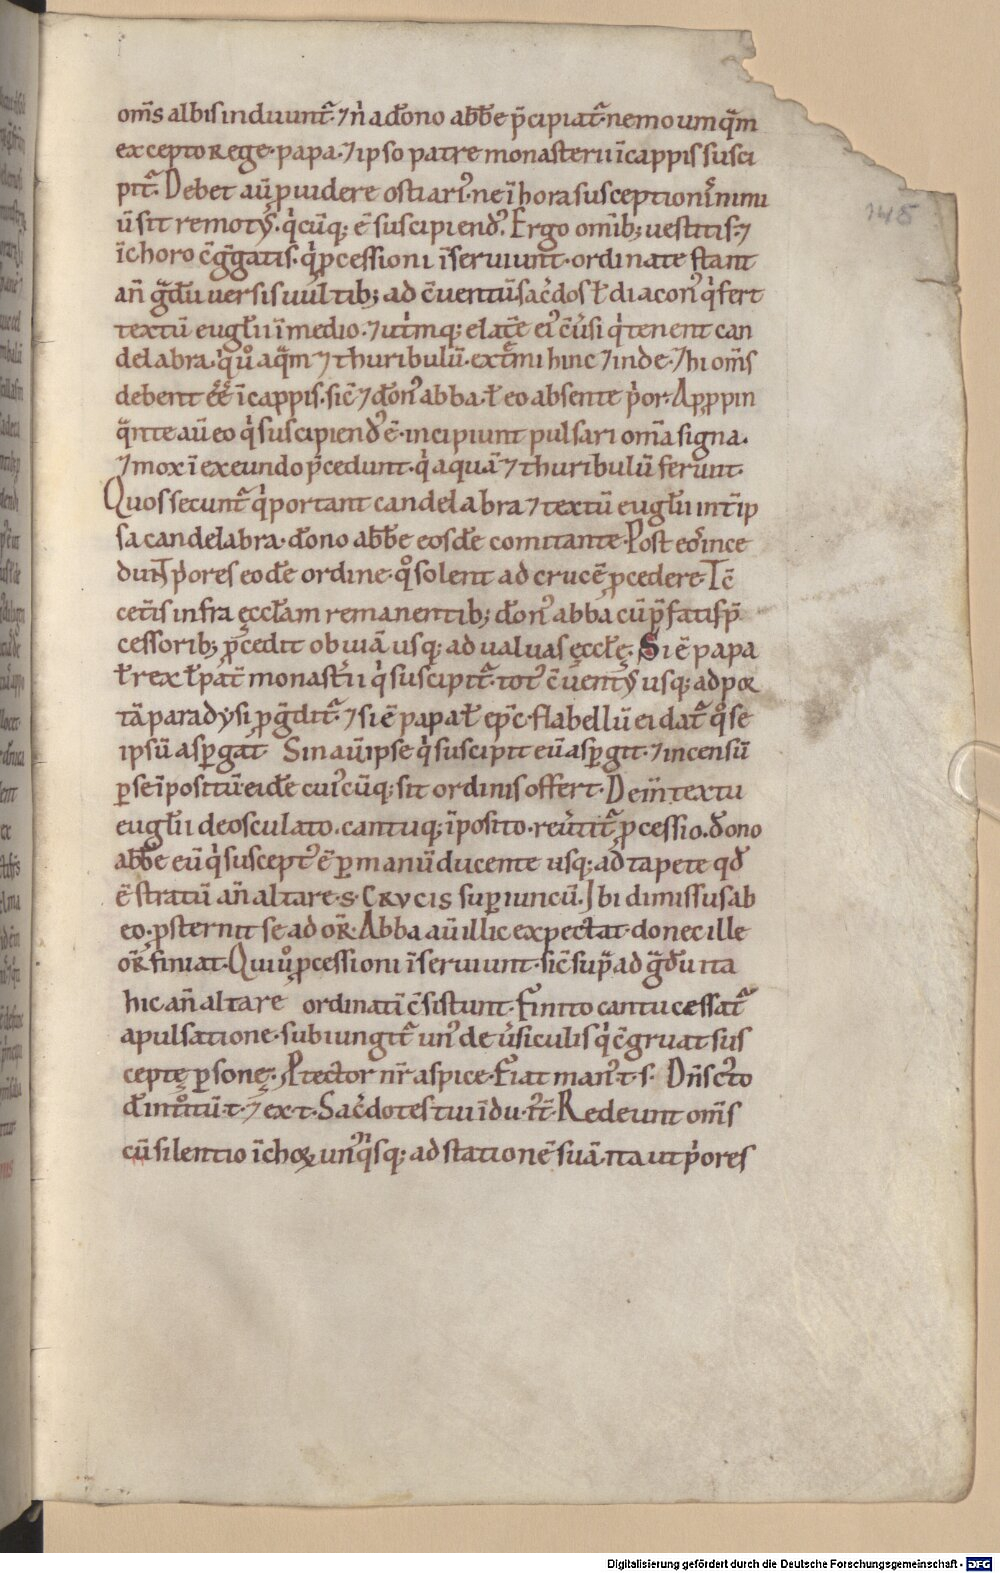 om̄s albis induunt᷑. ⁊ n̄ a dōno abb̄e p̄cipiat᷑. nemo umq̄m
excepto rege. papa. ⁊ ipso patre monasterii ī cappis susci
pit᷑. Debet aū puidere ostiari᷒. ne ī hora susceptionis nimi
ū sit remotus. qͥcūq; ē suscipiend᷒. Ergo om̄ib; uestitis. ⁊
ī choro c̄ḡgatis. qͥ pcessioni īseruiunt. ordinate stant
an̄ ḡdū uersis uultib; ad c̄uentū sac̄dos ł diacon᷒ qͥ fert
textū eugłii ī medio. ⁊ utͥmq; e latere ei᷒ c̄uersi qͥ tenent can
delabra. qͥ uͦ aq̄m ⁊ thuribulū. extͤmi hinc ⁊ inde. ⁊ hi om̄s
debent ēē ī cappis. sic̄ ⁊ dōn᷒ abba. ł eo absente pͥor. Appropin
q̄nte aū eo qͥ suscipiend᷒ ē. incipiunt pulsari om̄a signa.
⁊ mox ī exeundo p̄cedunt. qͥ aquā ⁊ thuribulū ferunt.
Quos secunt᷑ qͥ portant candelabra ⁊ textū eugłii int̄ ip
sa candelabra. dōno abb̄e eosdē comitante. Post eos ince
dunt pͥores eodē ordine. qͦ solent ad crucē pcedere. Tc̄
cet̄is infra ęccłam remanentib; dōn᷒ abba cū p̄fatis p̄
cessorib; p̄cedit obuiā usq; ad ualuas ęccłę. Si ē papa
ł rex ł pat̄ monastͥii qͥ suscipit᷑. tot᷒ c̄uentus usq; ad por
tā paradysi pḡdit᷑. ⁊ si ē papa ł ep̄c. flabellū ei dat᷑ qͦ se
ipsū aspgat Sin aū ipse qͥ suscipit eū aspgit. ⁊ incensū
p se īpositū eidē cui᷒cūq; sit ordinis offert. Dein textu
eugłii deosculato. cantuq; īposito. reu̇tit᷑ pcessio. dōno
abb̄e eū qͥ suscept᷒ ē p manū ducente usq; ad tapete qđ
ē stratū an̄ altare. s. CRVCIS sup iuncū. Ibi dimissus ab
eo. psternit se ad or̄. Abba aū illic expectat. donec ille
or̄ finiat. Qui uͦ pcessioni īseruiunt. sic̄ sup̄ ad ḡdū ita
hic an̄ altare ordinati c̄sistunt. Finito cantu cessat᷑
a pulsatione. subiungit᷑ un᷒ de ūsiculis qͥ c̄gruat sus
ceptę psonę. Ptector nr̄ aspice. Fiat man᷒. t. s. Dn̄s c᷒to
dͥ intͦitū. t. ⁊ ex. t. Sac̄dotes tui īdu. r̄t̄. Redeunt om̄s
cū silentio ī chorꝝ un᷒qͥsq; ad stationē suā. ita ut pͥores